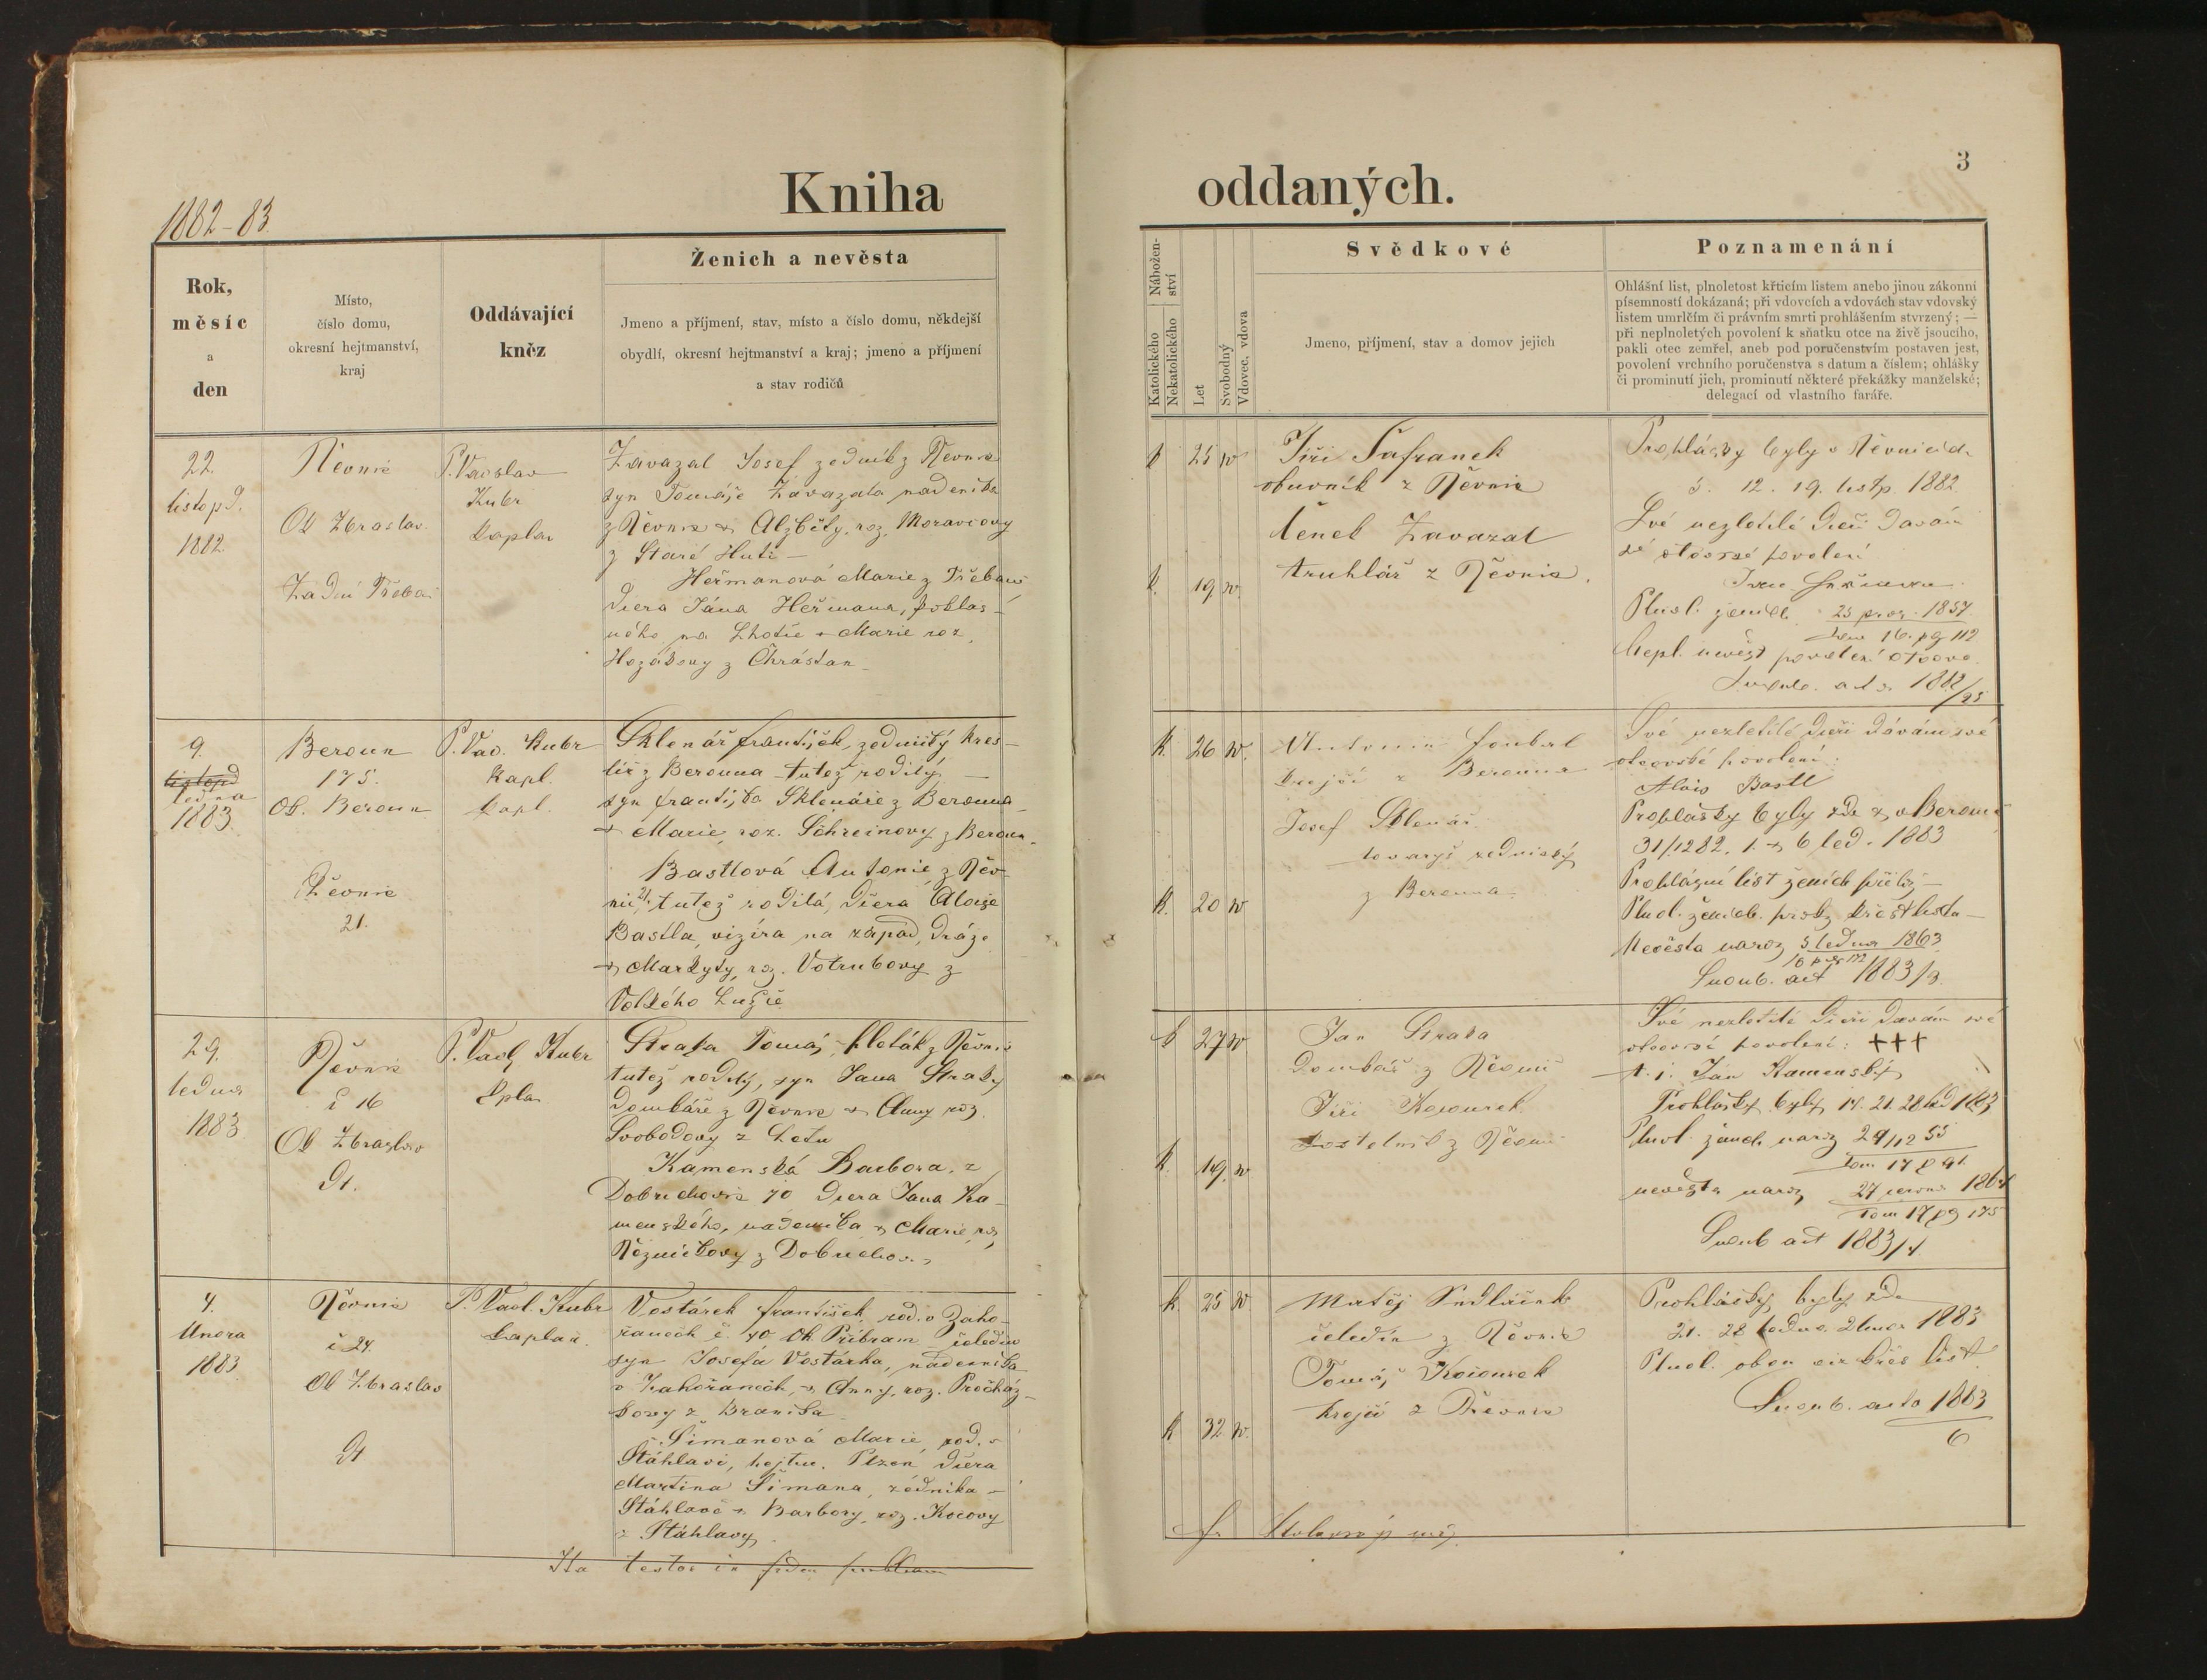 3
Kniha oddaných.
1882-83
Rok,
měsíc
a
den
Místo,
číslo domu,
okresní hejtmanství,
kraj
Oddávající
kněz
Ženich a nevěsta
Jmeno a příjmení, stav, místo a číslo domu, někdejší
obydlí, okresní hejtmanství a kraj; jmeno a příjmení
a stav rodičů
Nábožen-
ství
Katolického
Nekatolického
Let
Svobodný
Vdovec, vdova
Svědkové
Jmeno, příjmení, stav a domov jejich
Poznamenání
Ohlášní list, plnoletost křticím listem anebo jinou zákonní
písemností dokázaná; při vdovcích a vdovách stav vdovský
listem umrlčím či právním smrti prohlášením stvrzený; —
při neplnoletých povolení k sňatku otce na živě jsoucího,
pakli otec zemřel, aneb pod poručenstvím postaven jest,
povolení vrchního poručenstva s datum a číslem; ohlášky
či prominutí jich, prominutí některé překážky manželské;
delegací od vlastního faráře.
22.
listopd.
1882.
Řevnic
Ok Zbraslav
Zadní Třeban
P. Vácslav
Kubr
kaplan
Zavazal Josef zedník z Řevnic
syn Tomáše Zavazala nádeníka
z Řevnic + Alžběty, roz. Moravcovy
z Staré Huti —
Heřmanová Marie z Třebaně
dcera Jána Heřmana,
na Lhotce + Marie roz.
Hozákovy z Chrástan
k 25
k. 19
Jiří Šafranek
obuvník z Řevnic
Čeněk Zavazal
truhlář z Řevnic.
Prohlášky byly v Řevnicích
5. 12. 19. listp. 1882
Své nezletilé dceři dávám
své otcovské povolení
Plnol. ženich
1857
16. pg 112
povolení otcovo
1882/25
9.
listopd
ledna
1883
Beroun
175.
Ok. Beroun
Řevnic
21.
P. Vác. Kubr
Kapl.
kapl.
Sklenář František, zednický kres-
lič z Berouna tutéž rodilý, —
syn Františka Sklenáře z Berouna
+ Marie, roz. Schreinovy z Beroun.
Bastlová Antonie z Řev-
nic 21, tutéž rodilá, dcera Aloise
Bastla, vizíra na západ. dráze
+ Markyty, roz. Votrubovy z
K. 26
K. 20
Antonín Joubal
krejčí z Berouna
Josef Sklenář
tovaryš zednický
z Berouna
Své nezletilé dceři dávám své
otcovské povolení:
Alois Bastl
Prohlášky byly zde + v Berouně
31/12 82. 1. + 6 led. 1883
Prohlášní list ženich přilož —
Plnol. ženich.
Nevěsta naroz 5 ledna 1863
Snoub. act 1883/3.
29.
ledna
1883
Řevnic
č 16
Ok Zbraslav
Dt.
P. Václ Kubr
kplan
Straka Tomáš, z Řevnic
tutéž rodilý, syn Jana Straky
domkáře z Řevnic + Anny roz.
Svobodovy z Letu
Kamenská Barbora, z
Dobřichovic 70 dcera Jana Ka-
menského, nádeníka + Marie, roz.
Řezníčkovy z Dobřichov.
k 27
k. 19.
Jan Straka
Domkář z Řevnic
Jiří Kocourek
kostelník z Řevnic
Své nezletilé dceři dávám své
otcovské povolení: +++
t. j. Ján Kamenský
Prohlášky byly 14. 21. 28 led 1883
Plnol. ženich naroz 29/12 55
Tom 17 p 91.
nevěsta naroz 27 1864
Tom 17 pg 175
Snoub act 1883/4.
4.
Února
1883
Řevnic
č 24.
Ok Zbraslav
Dt
P. Václ. Kubr
kaplan
Vostárek František, rod. v Zaho-
řanech č. 40 Ok Příbram čeledín
syn Josefa Vostárka, nádenníka
v Zahořanech, + Anny, roz. Procház-
kovy z Braníka
Šimanová Marie, rod. v
Štáhlaví, hejtm. Plzeň dcera
Martina Šimana, zedníka
Štáhlavě + Barbory, roz. Kocovy
z Štáhlavy
k 25
K 32
Matěj Sedláček
čeledín z Řevnic
Tomáš Kocourek
krejčí z Řevnic
Prohlášky byly zde
21. 28 ledna 2 února 1883
Plnol. obou křes list
Snoub. acto 1883
6
Ita testor in fidem publicam